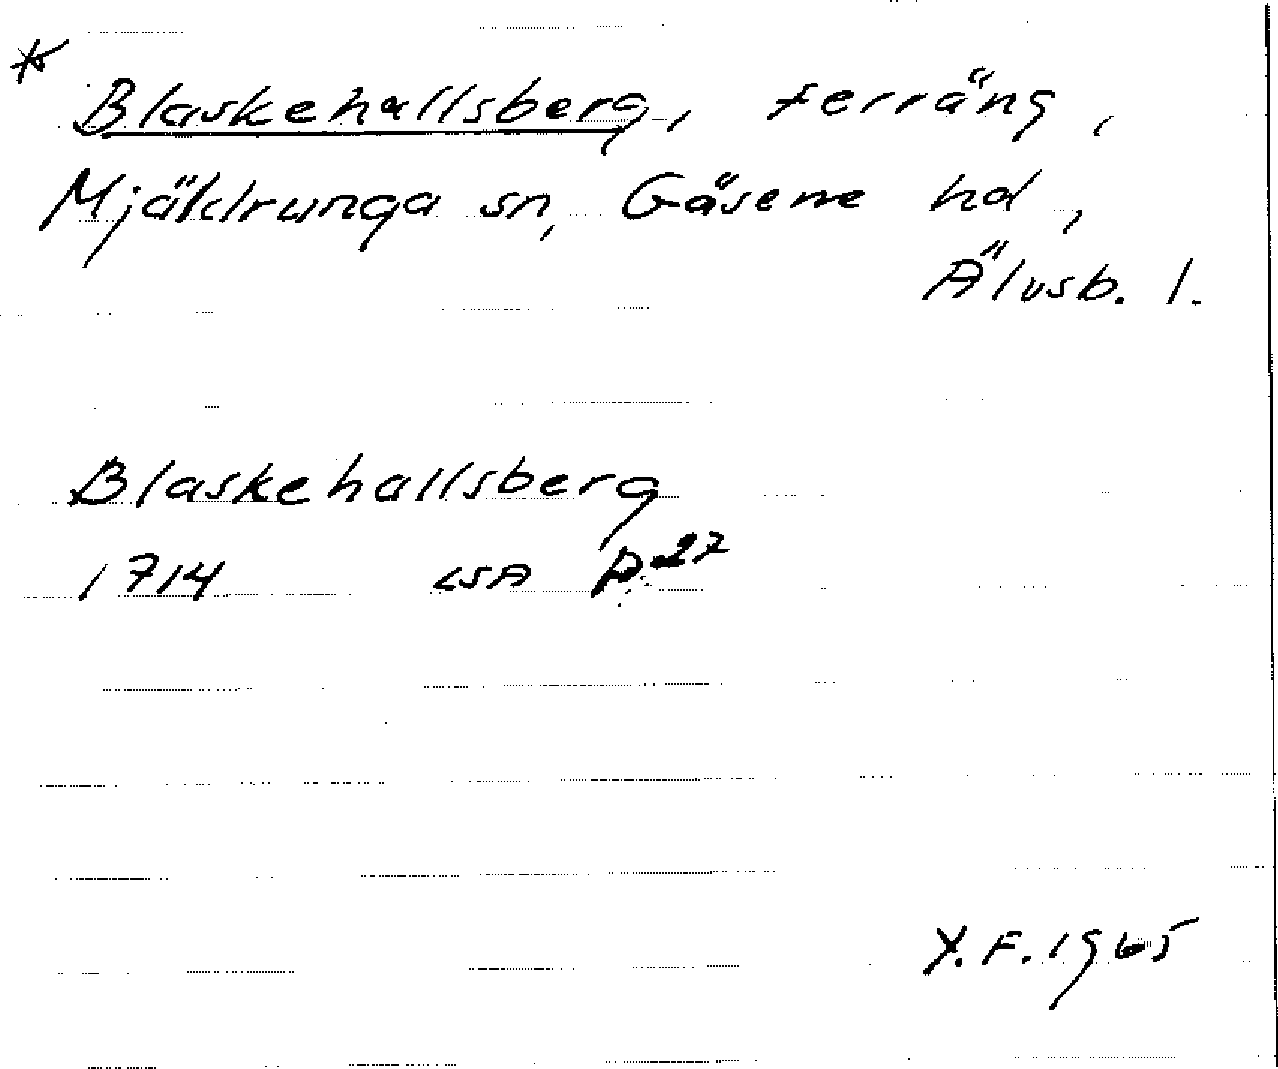 *
Blaskehallsberg, terräng,
Mjäldrunga sn, Gäsene hd,
Älvsb. l.
Blaskehallsberg
1714 LSA P 27
Y.F. 1965